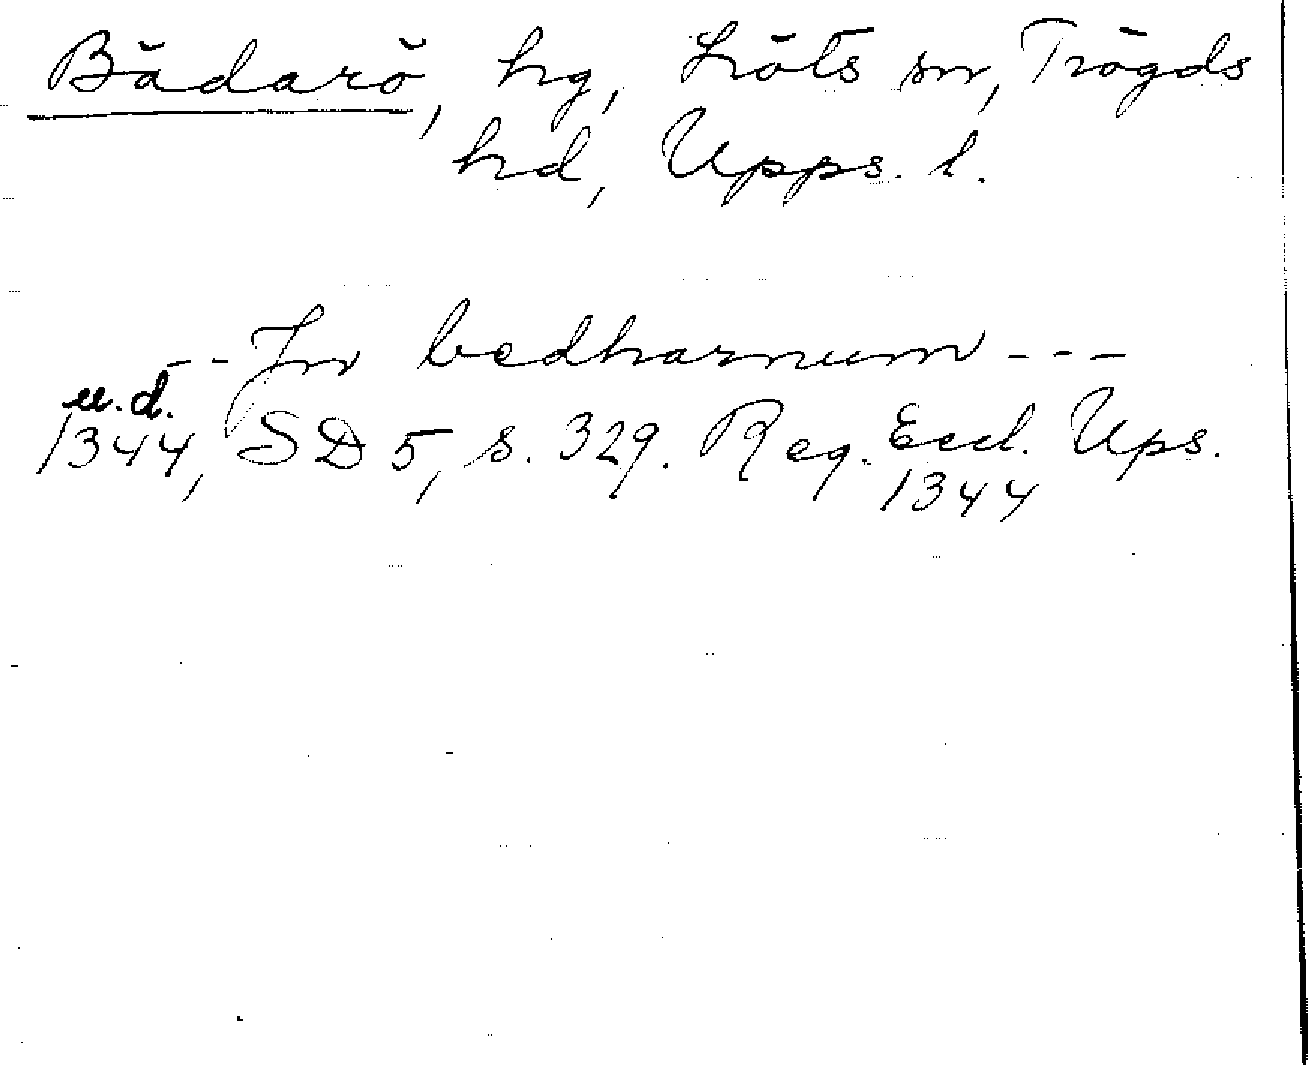 Bädarö, hg, Löts sn, Trögds
hd, Upps. l.
- - In bedharnum - - -
u.d.
1344, SD 5, s. 329. Reg. Eccl. Ups.
1344